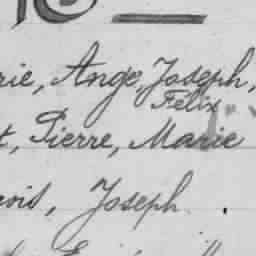 rie, Ange, Joseph,
Félix
t, Pierre, Marie
vois, Joseph.